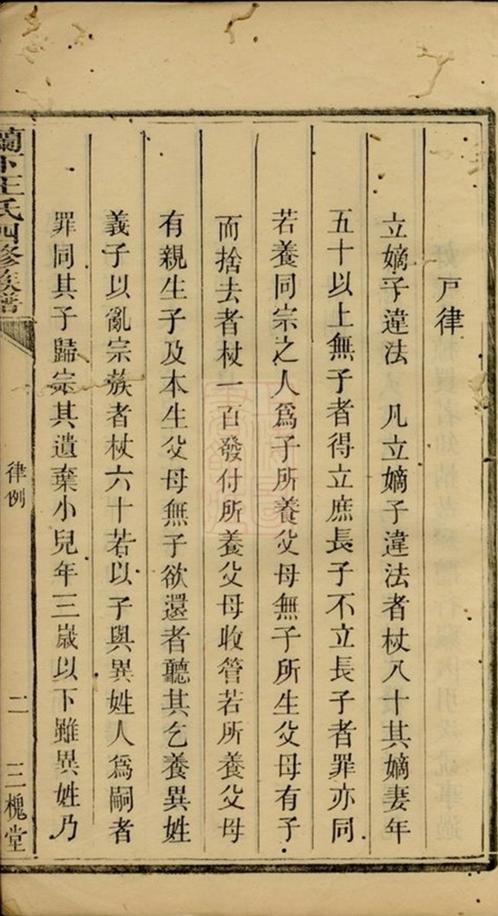 戸律
立嫡子違法　凡立嫡子違法者杖八十其嫡妻年
五十以上無子者得立庶長子不立長子者罪亦同
若養同宗之人為子所養父母無子所生父母有子
而捨去者杖一百發付所養父母收管若所養父母
有親生子及本生父母無子欲還者聽其乞養異姓
義子以亂宗族者杖六十若以子與異姓人為嗣者
罪同其子歸宗其遺棄小兒年三歲以下雖異姓乃
蘭下王氏四修族譜
律例
二
三槐堂